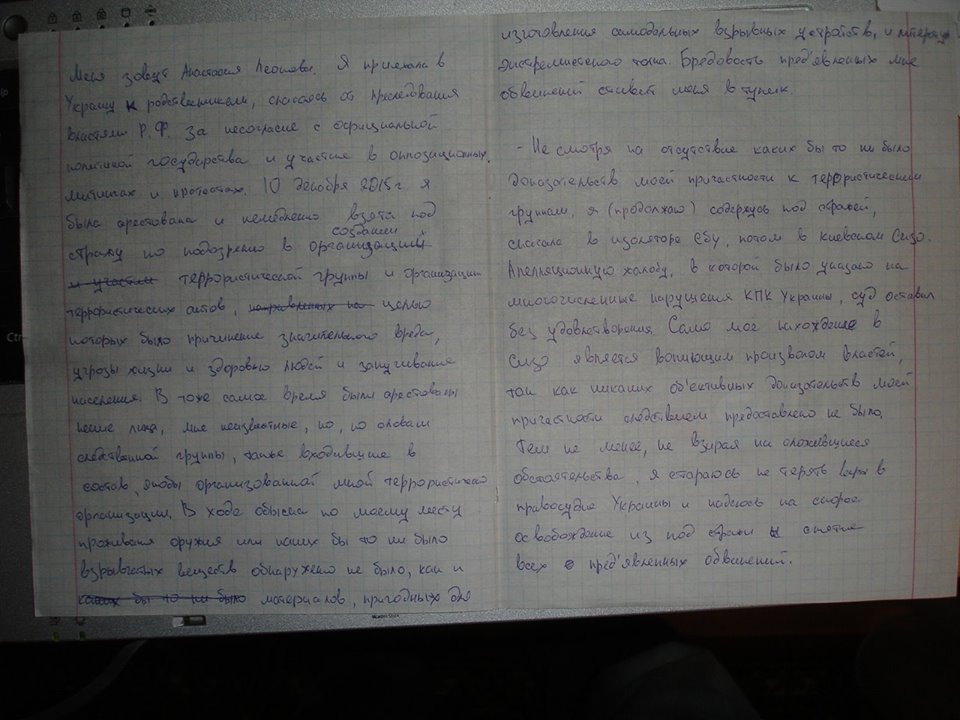 Меня зовут Анастасия Леонова. Я приехала в
Украину к родственникам, спасаясь от преследования
властями Р.Ф. за несогласие с официальной
политикой государства и участие в оппозиционных
митингах и протестах. 10 декабря 2015 г я
была арестована и немедленно взята под
созданием
стражу по подозрению в организации
и участии террористической группы и организации
террористических актов, направленных на целью
которых было причинение значительного вреда,
угрозы жизни и здоровью людей и запугивание
населения. В тоже самое время были арестованы
некие лица, мне неизвестные, но, по словам
следственной группы, также входившие в
состав, якобы организованной мной террористической
организации. В ходе обыска по моему месту
проживания оружия или каких бы то ни было
взрывчатых веществ обнаружено не было, как и
каких бы то ни было материалов, пригодных для
изготовления самодельных взрывных устройств, и литературы
экстремистского толка. Бредовость пред'явленных мне
обвинений ставит меня в тупик.
- Не смотря на отсутствие каких бы то ни было
доказательств моей причастности к террористическим
группам, я (продолжаю) содержусь под стражей,
сначала в изоляторе СБУ, потом в киевском Сизо.
Апелляционную жалобу, в которой было указано на
многочисленные нарушения КПК Украины, суд оставил
без удовлетворения. Само мое нахождение в
Сизо является вопиющим произволом властей,
так как никаких об'ективных доказательств моей
причастности следствием предоставлено не было.
Тем не менее, не взирая на сложившиеся
обстоятельства, я стараюсь не терять веры в
правосудие Украины и надеюсь на скорое
освобождение из под стражи и снятие
всех пред'явленных обвинений.